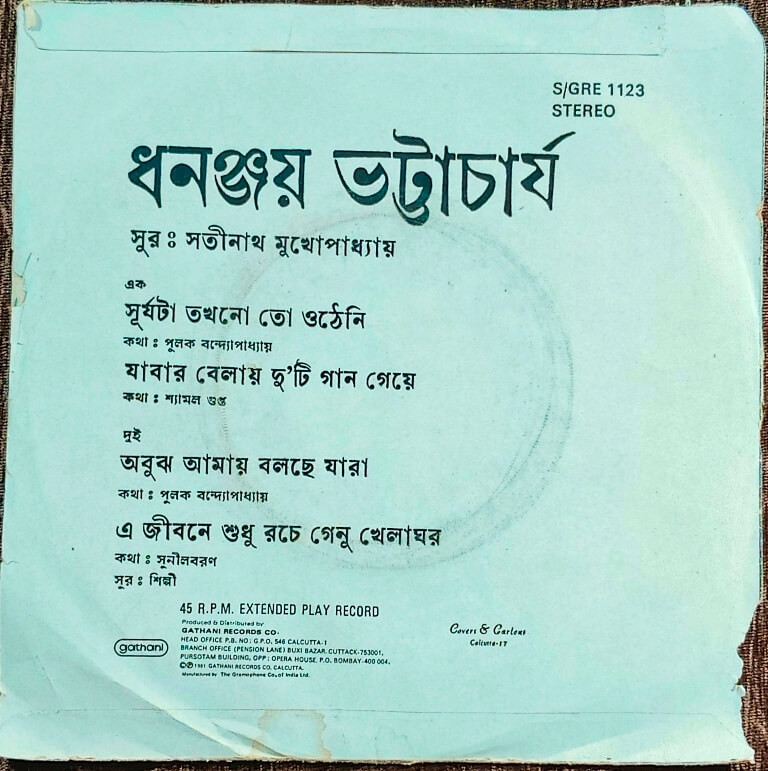 S/GRE 1123
STEREO
ধনঞ্জয় ভট্টাচার্য
সুর : সতীনাথ মুখোপাধ্যায়
এক
সূর্যটা তখনো তো ওঠেনি
কথা : পুলক বন্দ্যোপাধ্যায়
যাবার বেলায় দু'টি গান গেয়ে
কথা : শ্যামল গুপ্ত
দুই
অবুঝ আমায় বলছে যারা
কথা : পুলক বন্দ্যোপাধ্যায়
এ জীবনে শুধু রচে গেনু খেলাঘর
কথা : সুনীলবরণ
সুর : শিল্পী
45 R.P.M. EXTENDED PLAY RECORD
gathani
Produced & Distributed by
GATHANI RECORDS CO.
HEAD OFFICE P.B. NO: G.P.O. 546 CALCUTTA-1
BRANCH OFFICE (PENSION LANE) BUXI BAZAR. CUTTACK-753001.
PURSOTAM BUILDING, OPP: OPERA HOUSE, P.O. BOMBAY-400 004.
©℗ 1981 GATHANI RECORDS CO. CALCUTTA.
Manufactured by The Gramophone Co. of India Ltd.
Covers & Cartons
Calcutta-17